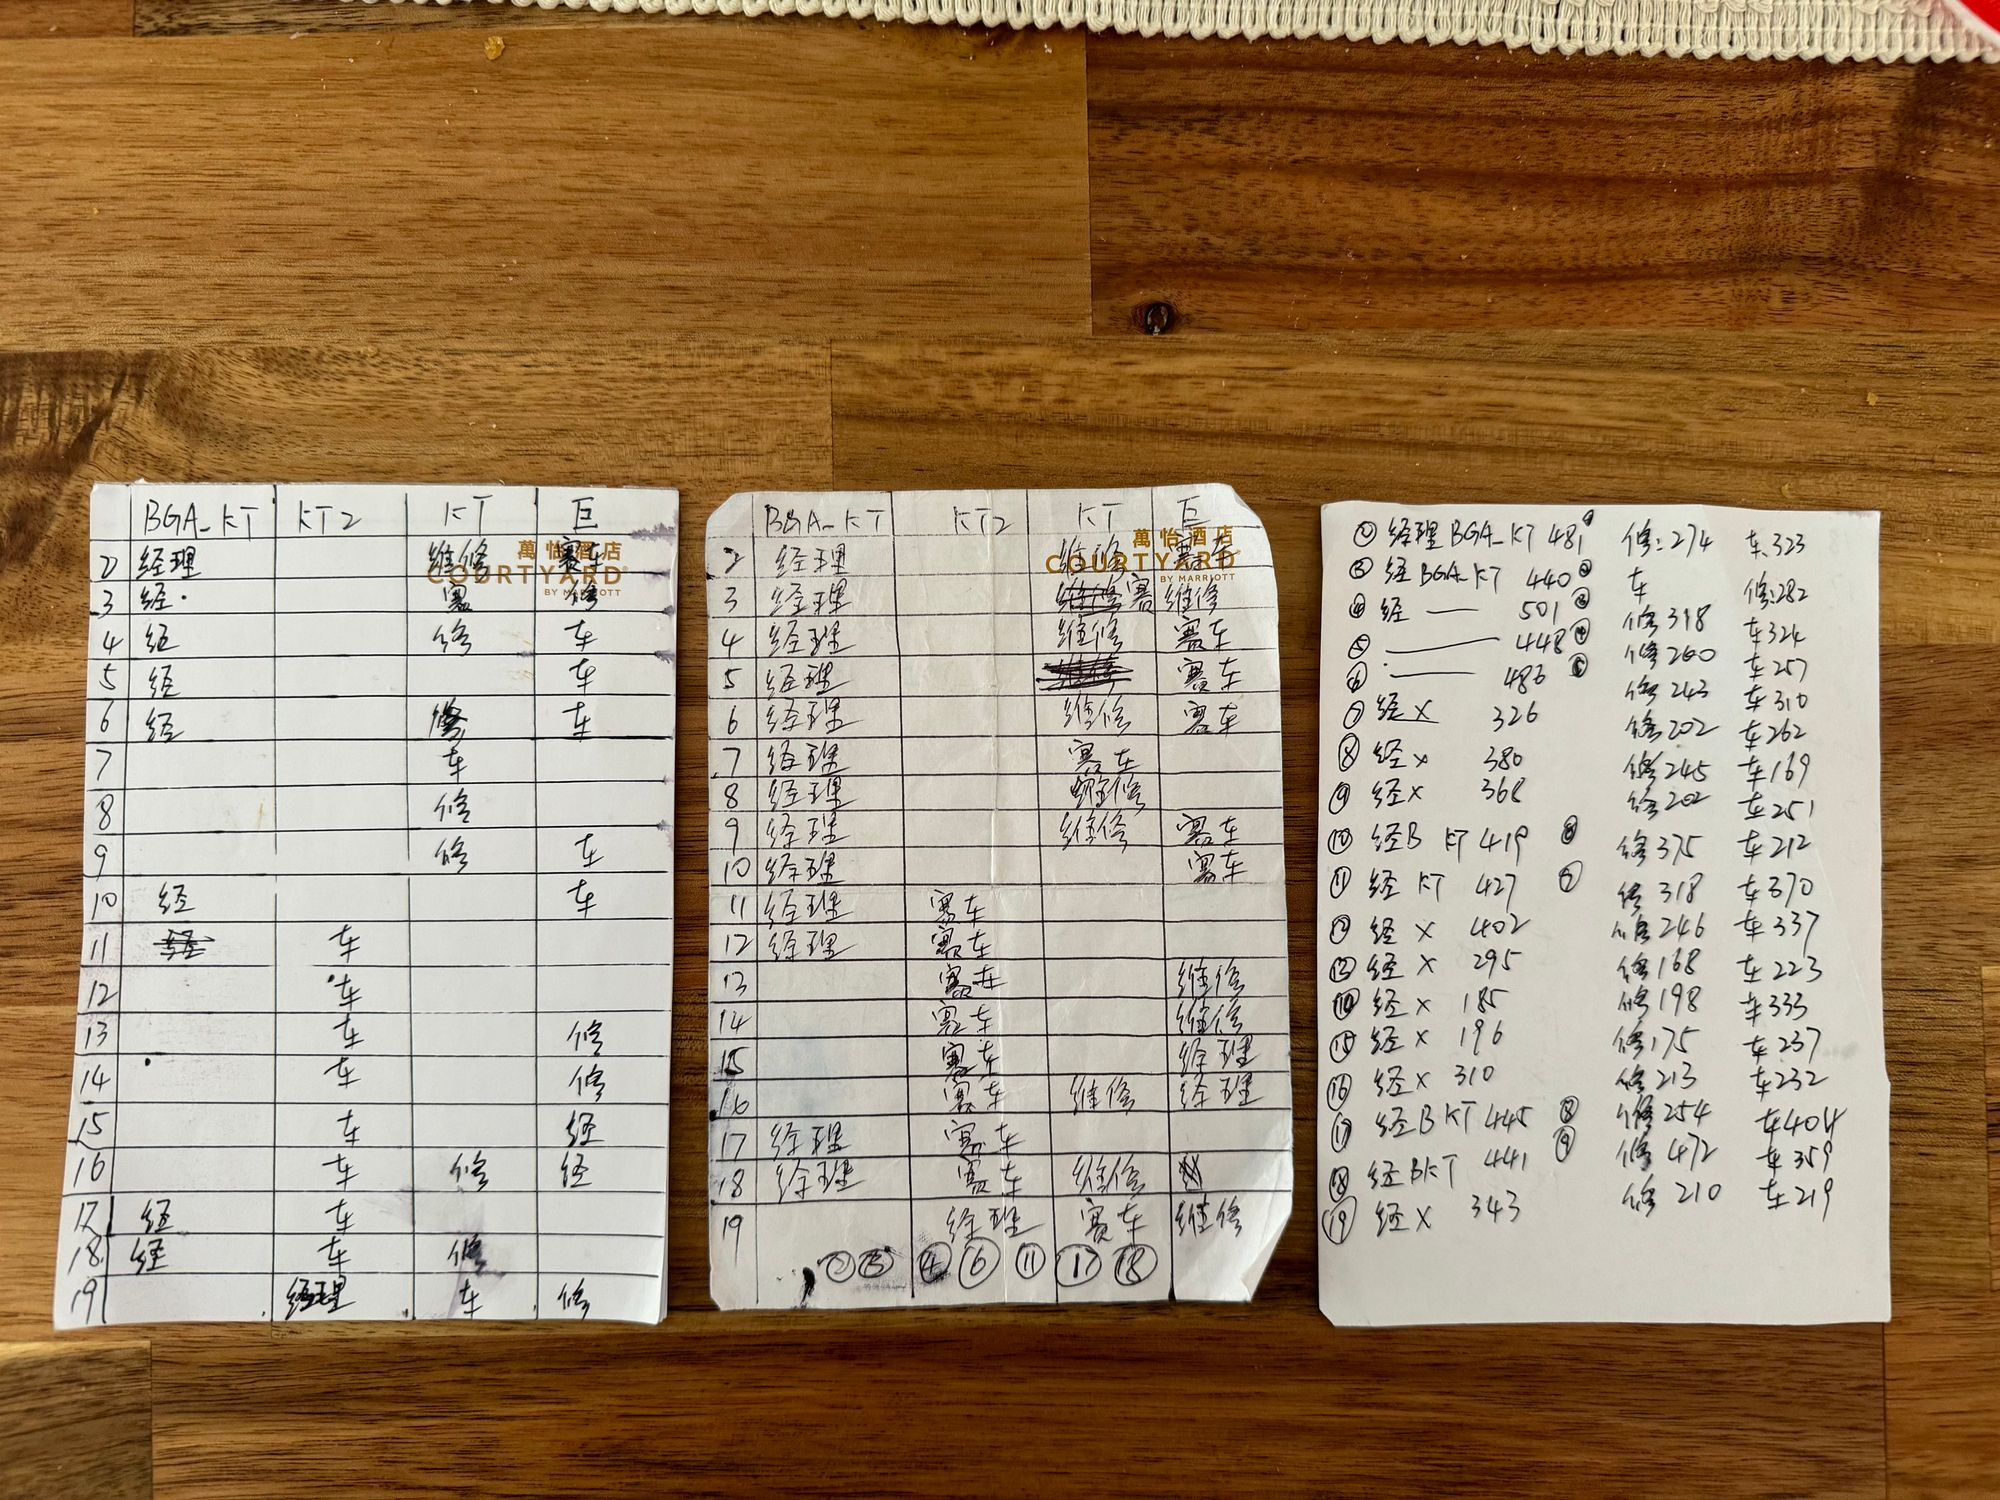 BGA-KT KT2 KT 巨
萬怡酒店
COURTYARD®
BY MARRIOTT
2 经理 维修 赛车
3 经· 赛 修
4 经 修 车
5 经 车
6 经 修 车
7 车
8 修
9 修 车
10 经 车
11 经 车
12 车
13 车 修
14 车 修
15 车 经
16 车 修 经
17 经 车
18 经 车 修
19 经理 车 修
BGA-KT KT2 KT 巨
萬怡酒店
COURTYARD
BY MARRIOTT
2 经理 维修 赛车
3 经理 维修 赛 维修
4 经理 维修 赛车
5 经理 维修 赛车
6 经理 维修 赛车
7 经理 赛车
8 经理 维修
9 经理 维修 赛车
10 经理 赛车
11 经理 赛车
12 经理 赛车
13 赛车 维修
14 赛车 维修
15 赛车 经理
16 赛车 维修 经理
17 经理 赛车
18 经理 赛车 维修
19 经理 赛车 维修
② ③ ④ ⑥ ⑪ ⑰ ⑱
② 经理 BGA-KT 481 修:274 车323
③ 经 BGA-KT 440 ② 车 修:282
④ 经 — 501 ③ 修318 车324
⑤ — 448 ④ 修260 车257
⑥ — 486 ⑤ 修243 车310
⑦ 经 × 326 修202 车262
⑧ 经 × 380 修245 车169
⑨ 经 × 368 修202 车251
⑩ 经B KT 419 修375 车212
⑪ 经 KT 427 ⑦ 修318 车370
⑫ 经 × 402 修246 车337
⑬ 经 × 295 修168 车223
⑭ 经 × 185 修198 车333
⑮ 经 × 196 修175 车237
⑯ 经 × 310 修213 车232
⑰ 经B KT 445 ⑧ 修254 车404
⑱ 经BKT 441 ⑨ 修472 车359
⑲ 经 × 343 修210 车219